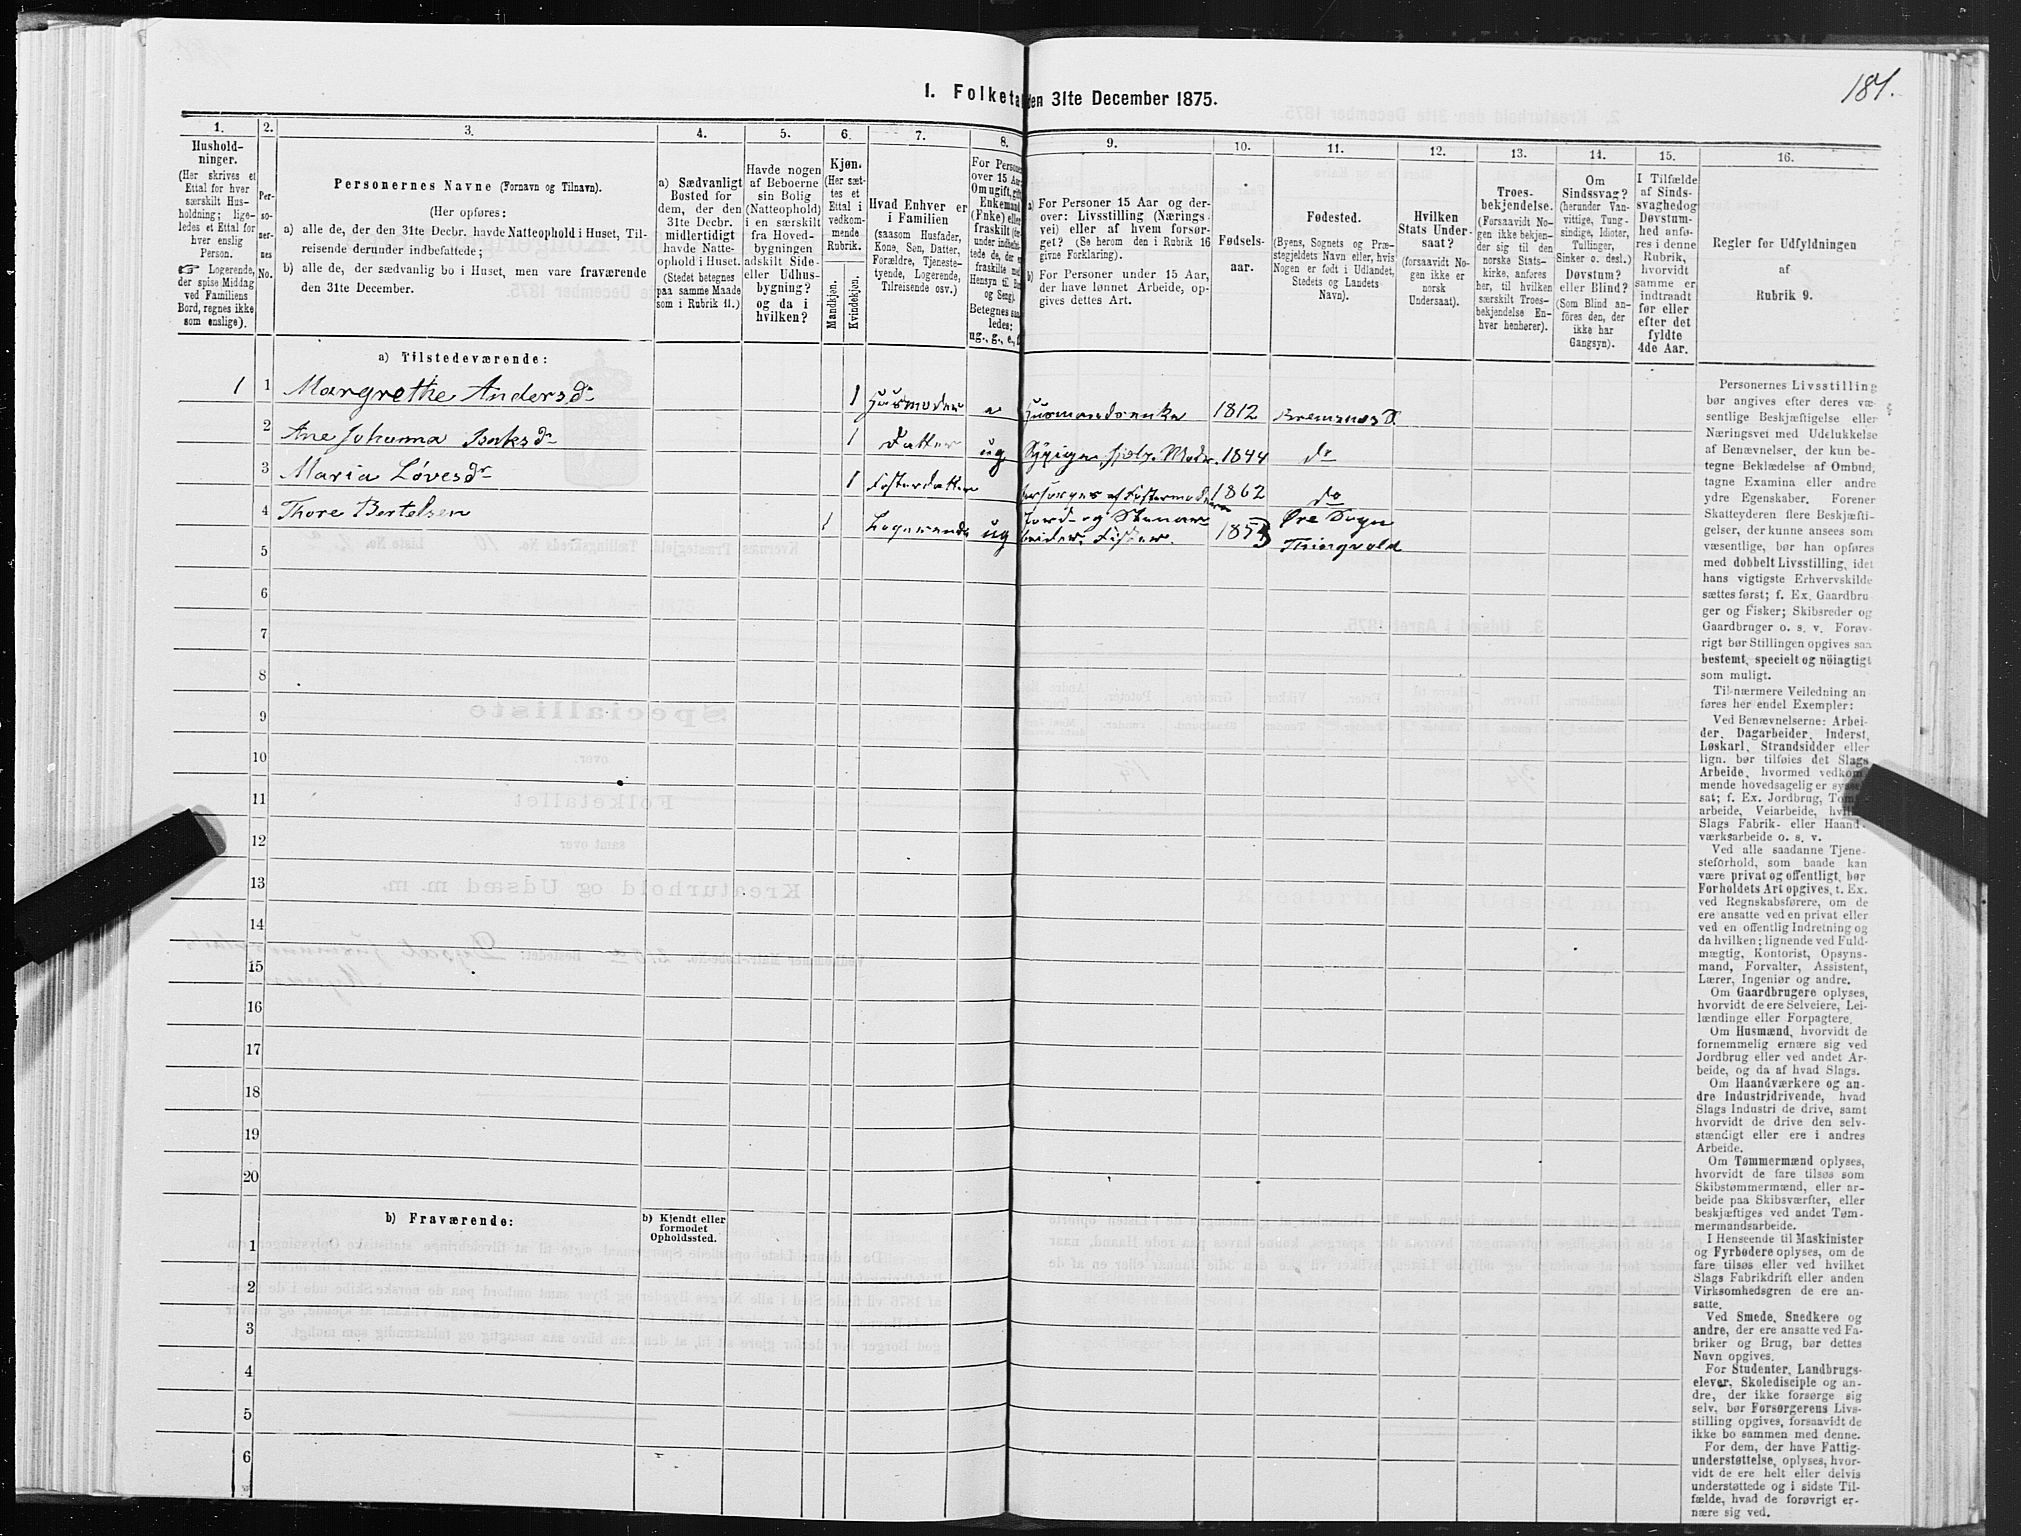 181.
1. Folketal den 31te December 1875.
1. 2. 3. 4. 5. 6. 7. 8. 9. 10. 11. 12. 13. 14. 15. 16.
Hushold-
ninger.
(Her skrives et
Ettal for hver
særskilt Hus-
holdning; lige-
ledes et Ettal for
hver enslig
Person.
☞ Logerende,
der spise Middag
ved Familiens
Bord, regnes ikke
som enslige).
Per-
so-
ner-
nes
No.
Personernes Navne (Fornavn og Tilnavn).
(Her opføres:
a) alle de, der den 31te Decbr. havde Natteophold i Huset, Til-
reisende derunder indbefattede;
b) alle de, der sædvanlig bo i Huset, men vare fraværende
den 31te December.
a) Sædvanligt
Bosted for
dem, der den
31te Decbr.
midlertidigt
havde Natte-
ophold i Huset.
(Stedet betegnes
paa samme Maade
som i Rubrik 11.)
Havde nogen
af Beboerne
sin Bolig
(Natteophold)
i en særskilt
fra Hoved-
bygningen
adskilt Side-
eller Udhus-
bygning?
og da i
hvilken?
Kjøn.
(Her sæt-
tes et
Ettal i
vedkom-
mende
Rubrik.
Mandkjøn.
Kvindekjøn.
Hvad Enhver er
i Familien
(saasom Husfader,
Kone, Søn, Datter,
Forældre, Tjeneste-
tyende, Logerende,
Tilreisende osv.)
For Personer
over 15 Aar
Om ugift, gift,
Enkemand
(Enke) eller
fraskilt
Betegnes saa-
ledes:
ug., g., e., f.
a) For Personer 15 Aar og der-
over: Livsstilling (Nærings-
vei) eller af hvem forsør-
get? (Se herom den i Rubrik 16
givne Forklaring).
b) For Personer under 15 Aar,
der have lønnet Arbeide, op-
gives dettes Art.
Fødsels-
aar.
Fødested.
(Byens, Sognets og Præ-
stegjeldets Navn eller, hvis
Nogen er født i Udlandet,
Stedets og Landets
Navn).
Hvilken
Stats Under-
saat?
(forsaavidt No-
gen ikke er
norsk
Undersaat).
Troes-
bekjendelse.
(Forsaavidt No-
gen ikke bekjen-
der sig til den
norske Stats-
kirke, anføres
her, til hvilken
særskilt Troes-
bekjendelse En-
hver henhører).
Om
Sindssvag?
(herunder Van-
vittige, Tung-
sindige, Idioter,
Tullinger,
Sinker o. desl.)
Døvstum?
eller Blind?
(Som Blind an-
føres den, der
ikke har
Gangsyn).
I Tilfælde
af Sinds-
svaghed og
Døvstum-
hed anfø-
res i denne
Rubrik,
hvorvidt
samme er
indtraadt
før eller
efter det
fyldte
4de Aar.
Regler for Udfyldningen
af
Rubrik 9.
a) Tilstedeværende:
1 1 Margrethe Andersdr 1 Husmoder e Husmandsenke 1812 Bremsnæs S.
2 Ane Johanna Isaksdr 1 Datter ug 1844 do
3 Maria Løvesdr 1 Fosterdatter forsørges af Fostermoderen 1862 do
4 Thore Bertelsen 1 Logerende ug Jord- og Stenar- 1853 Øre Sogn
5 beider, Fisker. Thingvold
6
7
8
9
10
11
12
13
14
15
16
17
18
19
20
b) Fraværende:
b) Kjendt eller
formodet
Opholdssted.
1
2
3
4
5
6
Personernes Livsstilling
bør angives efter deres væ-
sentlige Beskjæftigelse eller
Næringsvei med Udelukkelse
af Benævnelser, der kun be-
tegne Beklædelse af Ombud,
tagne Examina eller andre
ydre Egenskaber. Forener
Skatteyderen flere Beskjæfti-
gelser, der kunne ansees som
væsentlige, bør han opføres
med dobbelt Livsstilling, idet
hans vigtigste Erhvervskilde
sættes først; f. Ex. Gaardbru-
ger og Fisker; Skibsreder og
Gaardbruger o. s. v. Forøv-
rigt bør Stillingen opgives saa
bestemt, specielt og nøiagtigt
som muligt.
Til nærmere Veiledning an-
føres her endel Exempler:
Ved Benævnelserne: Arbei-
der, Dagarbeider, Inderst,
Løskarl, Strandsidder eller
lign. bør tilføies det Slags
Arbeide, hvormed vedkom-
mende hovedsagelig er syssel-
sat; f. Ex. Jordbrug, Tomte-
arbeide, Veiarbeide, hvilket
Slags Fabrik- eller Haand-
værksarbeide o. s. v.
Ved alle saadanne Tjene-
steforhold, som baade kan
være privat og offentligt, bør
Forholdets Art opgives, t. Ex.
ved Regnskabsførere, om de
ere ansatte ved en privat eller
ved en offentlig Indretning og
da hvilken; lignende ved Fuld-
mægtig, Kontorist, Opsyns-
mand, Forvalter, Assistent,
Lærer, Ingeniør og andre.
Om Gaardbrugere oplyses,
hvorvidt de ere Selveiere, Lei-
lændinge eller Forpagtere.
Om Husmænd, hvorvidt de
fornemmelig ernære sig ved
Jordbrug eller ved andet Ar-
beide, og da af hvad Slags.
Om Haandværkere og an-
dre Industridrivende, hvad
Slags Industri de drive, samt
hvorvidt de drive den selv-
stændigt eller ere i andres
Arbeide.
Om Tømmermænd oplyses,
hvorvidt de fare tilsøs som
Skibstømmermænd, eller ar-
beide paa Skibsværfter, eller
beskjæftiges ved andet Tøm-
mermandsarbeide.
I Henseende til Maskinister
og Fyrbødere oplyses, om de
fare tilsøs eller ved hvilket
Slags Fabrikdrift eller anden
Virksomhedsgren de ere an-
satte.
Ved Smede, Snedkere og
andre, der ere ansatte ved Fa-
briker og Brug, bør dettes
Navn opgives.
For Studenter, Landbrugs-
elever, Skoledisciple og an-
dre, der ikke forsørge sig
selv, bør Forsørgerens Livs-
stilling opgives, forsaavidt de
ikke bo sammen med denne.
For dem, der have Fattig-
understøttelse, oplyses, hvor-
vidt de ere helt eller delvis
understøttede og i sidste Til-
fælde, hvad de forøvrigt er-
nære sig ved.